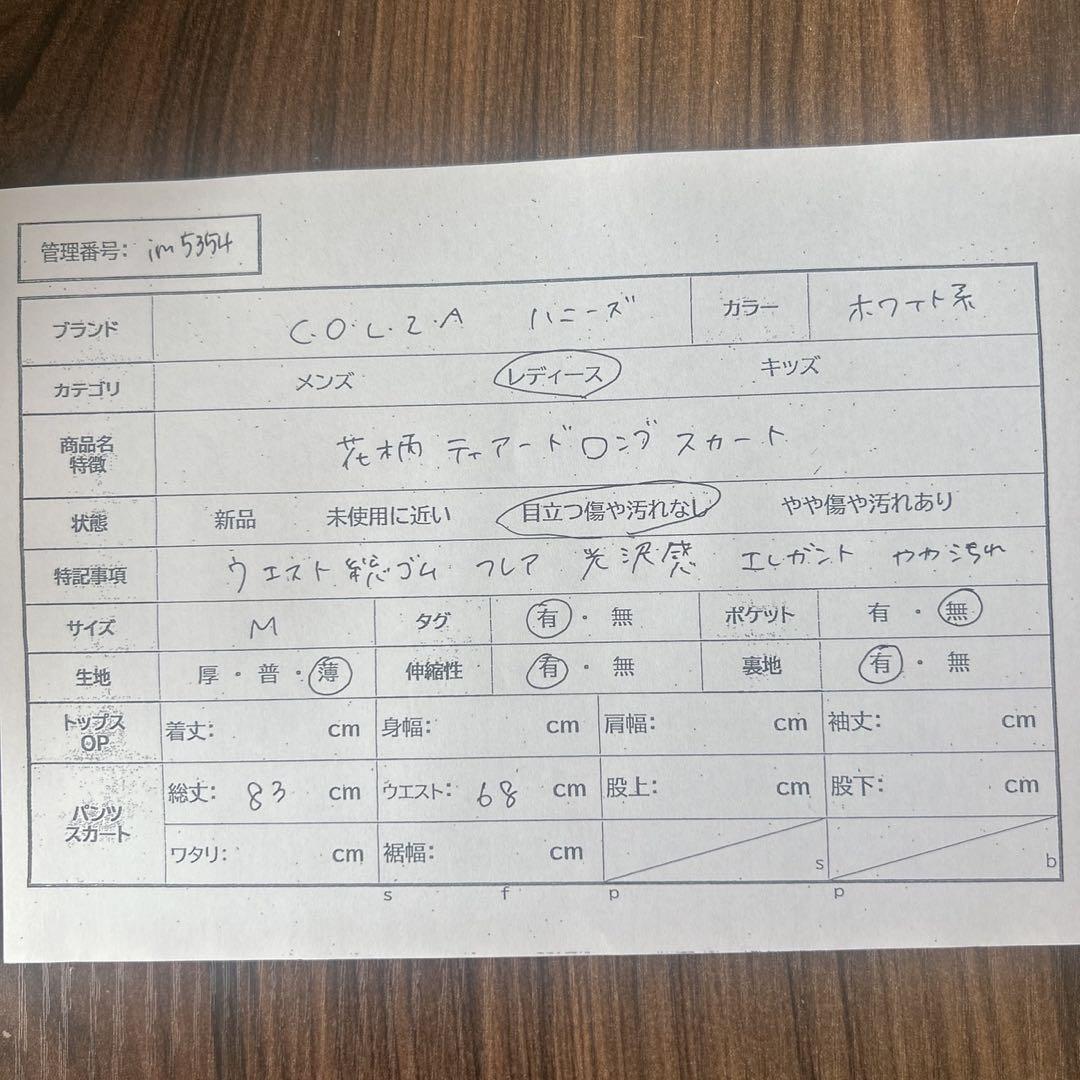 管理番号: im5354
ブランド C.O.L.Z.A ハニーズ カラー ホワイト系
カテゴリ メンズ レディース キッズ
商品名 特徴 花柄 ティアードロングスカート
状態 新品 未使用に近い 目立つ傷や汚れなし やや傷や汚れあり
特記事項 ウエスト総ゴム フレア 光沢感 エレガント やや汚れ
サイズ M タグ 有・無 ポケット 有・無
生地 厚・普・薄 伸縮性 有・無 裏地 有・無
トップス OP 着丈: cm 身幅: cm 肩幅: cm 袖丈: cm
パンツ スカート 総丈: 83 cm ウエスト: 68 cm 股上: cm 股下: cm
ワタリ: cm 裾幅: cm s b
s f p p